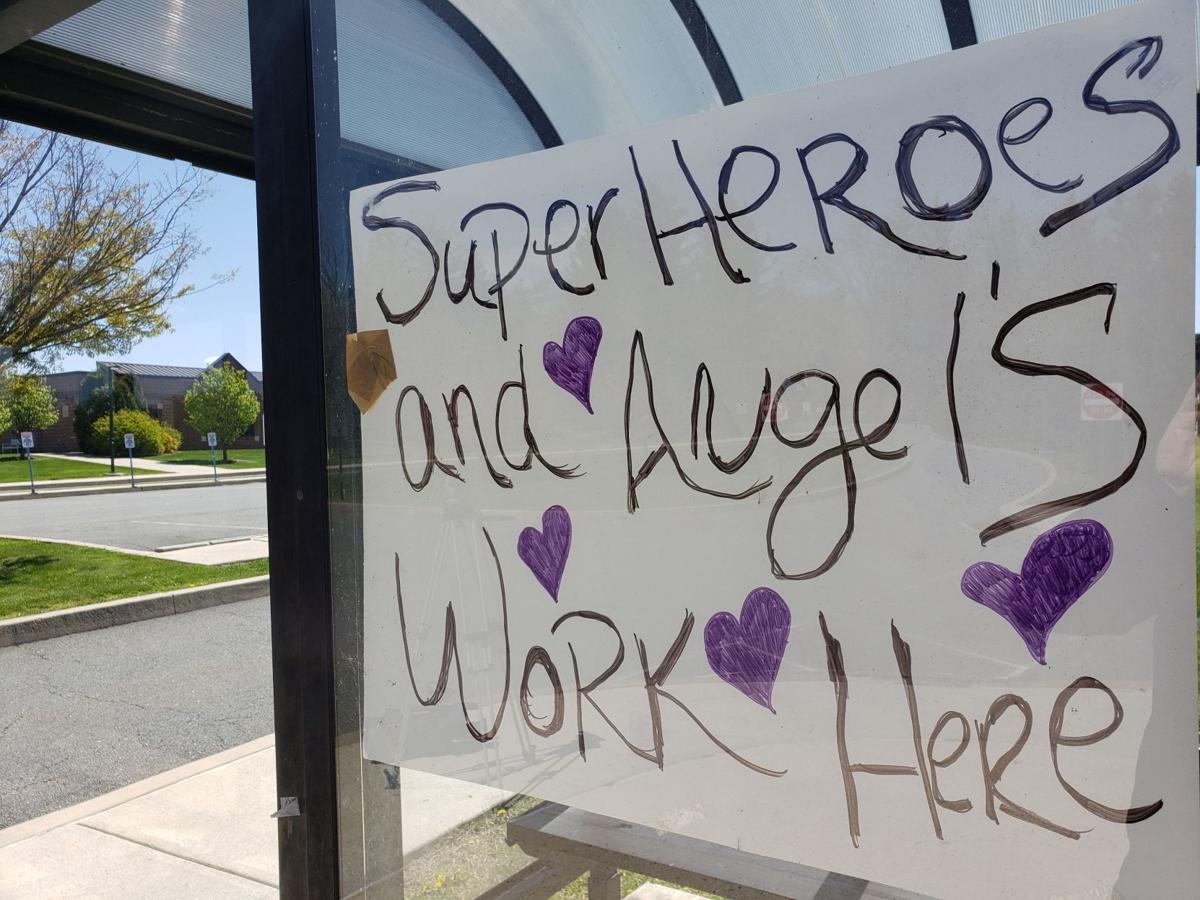 SuperHeroes
and Angel'S
Work Here